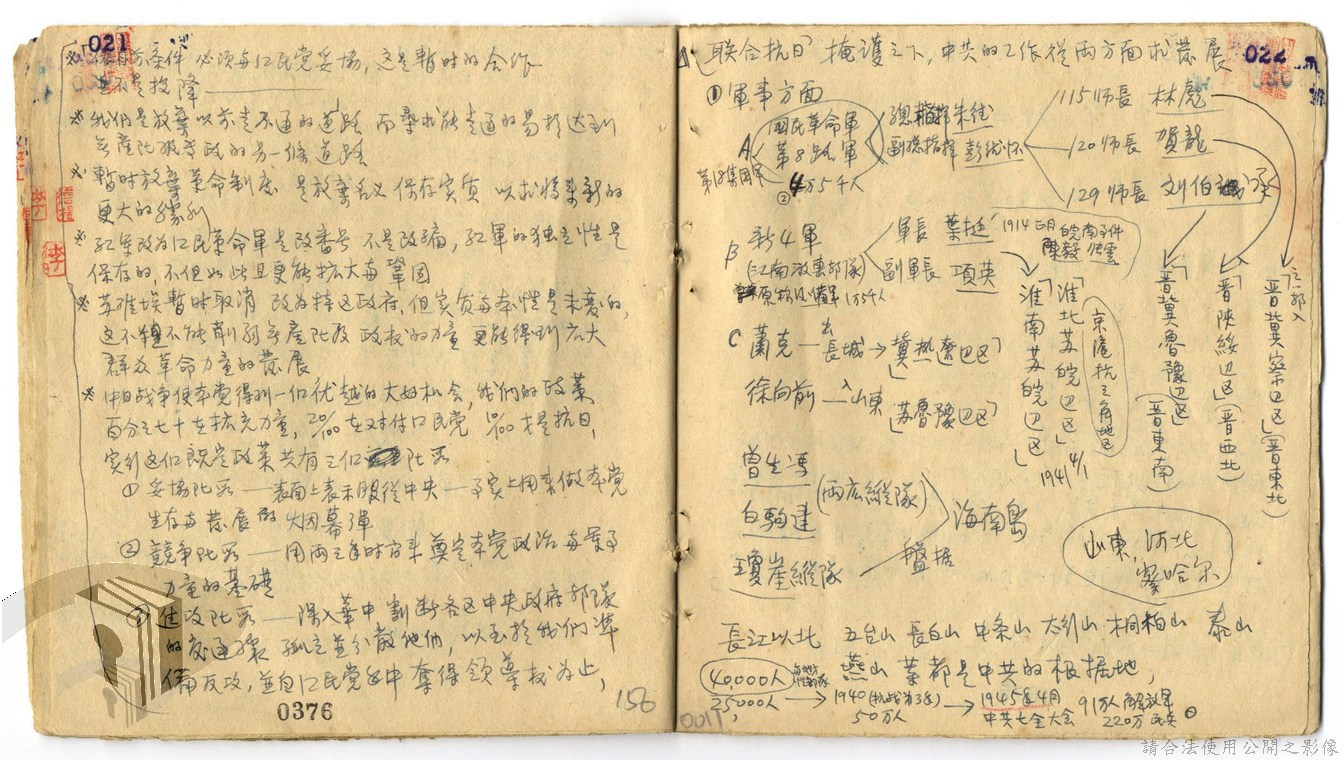 021
条件 必须与口民党妥協,这是暫时的合作
並不是投降
※ 我们是放棄以前走不通的道路 而尋求能走通的易於达到
無產阶级專政的另一條道路
※ 暫时放棄革命制度 是放棄名义 保存实质 以求將來新的
更大的勝利
※ 紅军改为口民革命軍是改番号 不是改編,紅軍的独立性是
保存的,不但如此且更能拡大与鞏固
※ 苏維埃暫时取消 改为特区政府,但实质与本性是未变的,
这不僅不能削弱無產阶级政权的力量 更能得到広大
群众革命力量的發展
※ 中日战争使本党得到一個优越的大好机会,我们的政策
百分之七十在拡充力量,20/00在对付口民党 10/00才是抗日,
实行这個既定政策共有三個阶段
① 妥協阶段——表面上表示服從中央——事实上用来做本党
生存与發展的烟幕彈
② 競争阶段——用两三年时间來奠定本党政治与軍事
力量的基礎
③ 進攻阶段——深入華中割断各区中央政府部隊
的交通 孤立並分散他们,以至於我们準
備反攻,並自口民党手中奪得領導权为止,
0376
156
022
「联合抗日」掩護之下,中共的工作從两方面求發展
① 軍事方面
A 國民革命軍
第8路軍
第18集團軍
4万5千人
②
總指揮 朱德
副總指揮 彭德怀
115师長 林彪
120师長 賀龍
129师長 刘伯承
B 新4軍
(江南游击部隊)
1万5千人
軍長 葉挺
副軍長 項英
1914 正月 皖南事件
陳毅
「淮南苏皖辺区」
「淮北苏皖辺区」
1941 4/1
京滬杭三角地区
「晋冀魯豫辺区」(晋東南)
「晋陝綏辺区」(晋西北)
「晋冀察辺区」(晋東北)
C 蕭克—出長城→「冀热察辺区」
徐向前—入山東「苏魯豫辺区」
曾生 馮
白駒 建
(両広縱隊)
瓊崖縱隊
盤据
海南島
山東,河北
察哈尔
長江以北 五台山 長白山 中条山 太行山 桐柏山 泰山
燕山 等都是中共的根据地,
40,000人
25,000人 → 1940(抗战第3年) → 1945年4月 91万人 解放軍
50万人 中共七全大会 220万 民兵
0011
請合法使用公開之影像